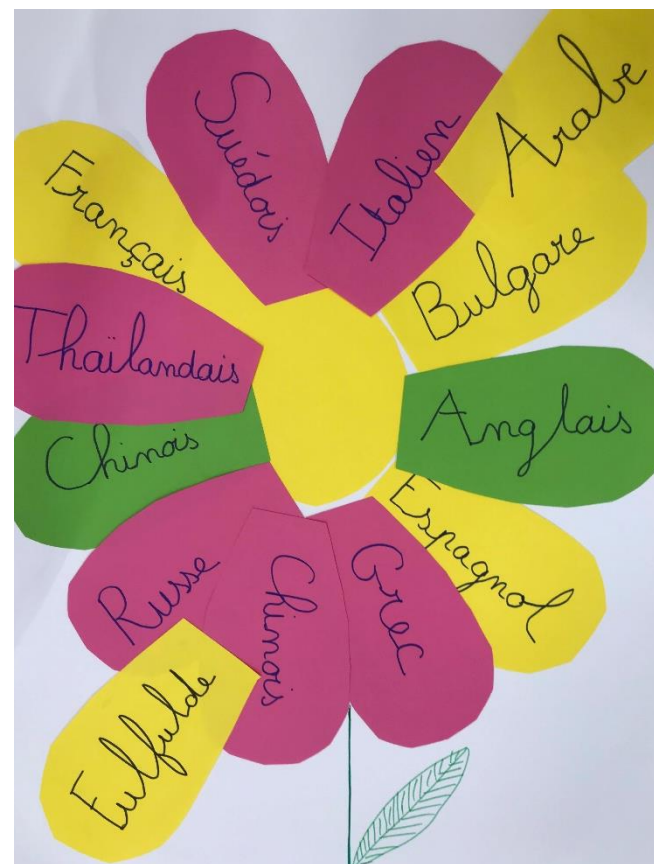 Suédois
Italien
Arabe
Français
Bulgare
Thaïlandais
Anglais
Chinois
Espagnol
Russe
Chinois
Grec
Fulfulde